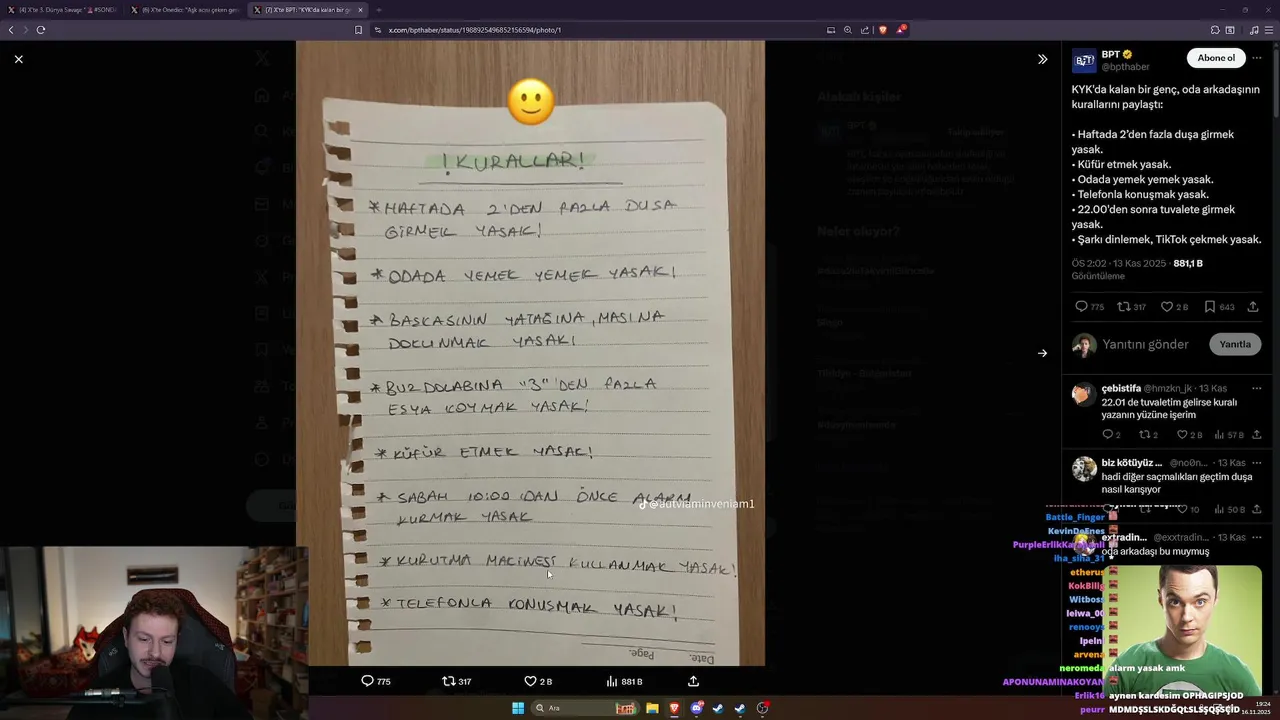 (4) X'te 3. Dünya Savaşı "🚨#SOND
(6) X'te Onedio: "Aşk acısı çeken gen
(7) X'te BPT: "KYK'da kalan bir g
x.com/bpthaber/status/1988925496852156594/photo/1
! KURALLAR!
* HAFTADA 2'DEN FAZLA DUŞA
GİRMEK YASAK!
* ODADA YEMEK YEMEK YASAK!
* BAŞKASININ YATAĞINA, MASINA
DOKUNMAK YASAK!
* BUZDOLABINA "3"'DEN FAZLA
EŞYA KOYMAK YASAK!
* KÜFÜR ETMEK YASAK!
* SABAH 10:00'DAN ÖNCE ALARM
KURMAK YASAK
@autviaminveniam1
* KURUTMA MACİNESİ KULLANMAK YASAK!
* TELEFONLA KONUŞMAK YASAK!
Page.
Date.
775
317
2 B
881 B
Alakalı kişiler
Neler oluyor?
BPT
@bpthaber
Abone ol
KYK'da kalan bir genç, oda arkadaşının
kurallarını paylaştı:
• Haftada 2'den fazla duşa girmek
yasak.
• Küfür etmek yasak.
• Odada yemek yemek yasak.
• Telefonla konuşmak yasak.
• 22.00'den sonra tuvalete girmek
yasak.
• Şarkı dinlemek, TikTok çekmek yasak.
ÖS 2:02 · 13 Kas 2025 · 881,1 B
Görüntüleme
775
317
2 B
643
Yanıtını gönder
Yanıtla
çebistifa @hmzkn_jk · 13 Kas
22.01 de tuvaletim gelirse kuralı
yazanın yüzüne işerim
2
2
2 B
57 B
biz kötüyüz ... @no0n... · 13 Kas
hadi diğer saçmalıkları geçtim duşa
nasıl karışıyor
10
50 B
extradin... @exxtradin... · 13 Kas
oda arkadaşı bu muymuş
Battle_Finger
KevinDeEnes
PurpleErlikKarahanli
iha_siha_31
etherus
KokBilig
Witboss
leiwa_00
renooys
Ipeln
arvena
neromeda alarm yasak amk
APONUNAMINAKOYAN
Erlik16 aynen kardesim OPHAGIPSJOD
peurr MDMDŞSLSKDĞQLSLŞQŞSÇİD
Ara
19:24
16.11.2025